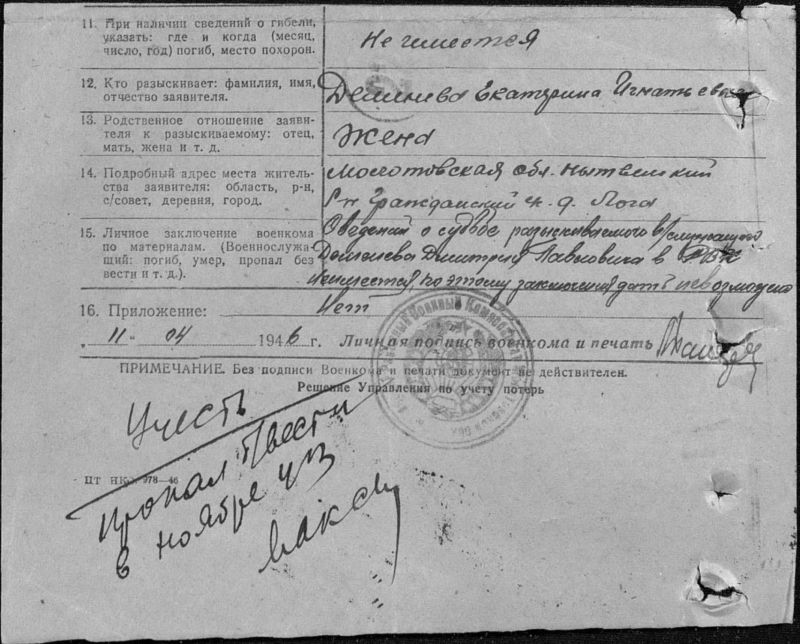 11. При наличии сведений о гибели,
указать: где и когда (месяц,
число, год) погиб, место похорон.
Не имеется
12. Кто разыскивает: фамилия, имя,
отчество заявителя.
Екатерина Игнатьевна
13. Родственное отношение заяви-
теля к разыскиваемому: отец,
мать, жена и т. д.
Жена
14. Подробный адрес места житель-
ства заявителя: область, р-н,
с/совет, деревня, город.
Молотовская обл. Нытвенский
р-н Гражданский
15. Личное заключение военкома
по материалам. (Военнослужа-
щий: погиб, умер, пропал без
вести и т. д.).
Сведений о судьбе разыскиваемого в/служащего
Дмитрия Павловича в РВК
не имеется, поэтому заключения дать невозможно
16. Приложение:
Нет
„ 11 - 04 1946 г. Личная подпись военкома и печать
ПРИМЕЧАНИЕ. Без подписи Военкома и печати документ не действителен.
Решение Управления по учету потерь
Учесть
ЦТ НКО 978—46
пропал б/вести
в ноябре 43